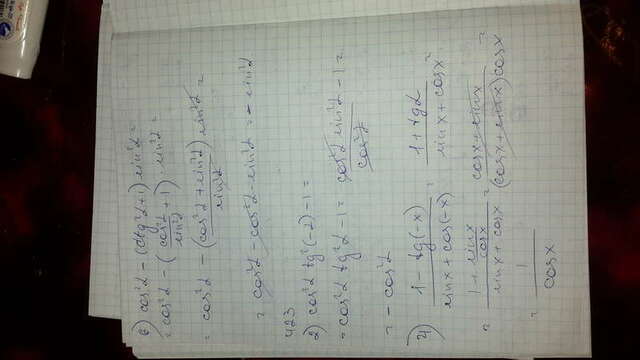 6) cos²α - (ctg²α+1) sin²α =
= cos²α - (cos²α/sin²α + 1) · sin²α =
= cos²α - (cos²α + sin²α / sin²α) sin²α =
= cos²α - cos²α - sin²α = - sin²α
423
2) cos²α tg²(-α) - 1 =
= cos²α tg²α - 1 = cos²α sin²α / cos²α - 1 =
= - cos²α
4) 1 - tg(-x) / sin x + cos(-x) = 1 + tgα / sin x + cos x =
= 1 + sin x / cos x / sin x + cos x = cos x + sin x / (cos x + sin x) cos x =
= 1 / cos x